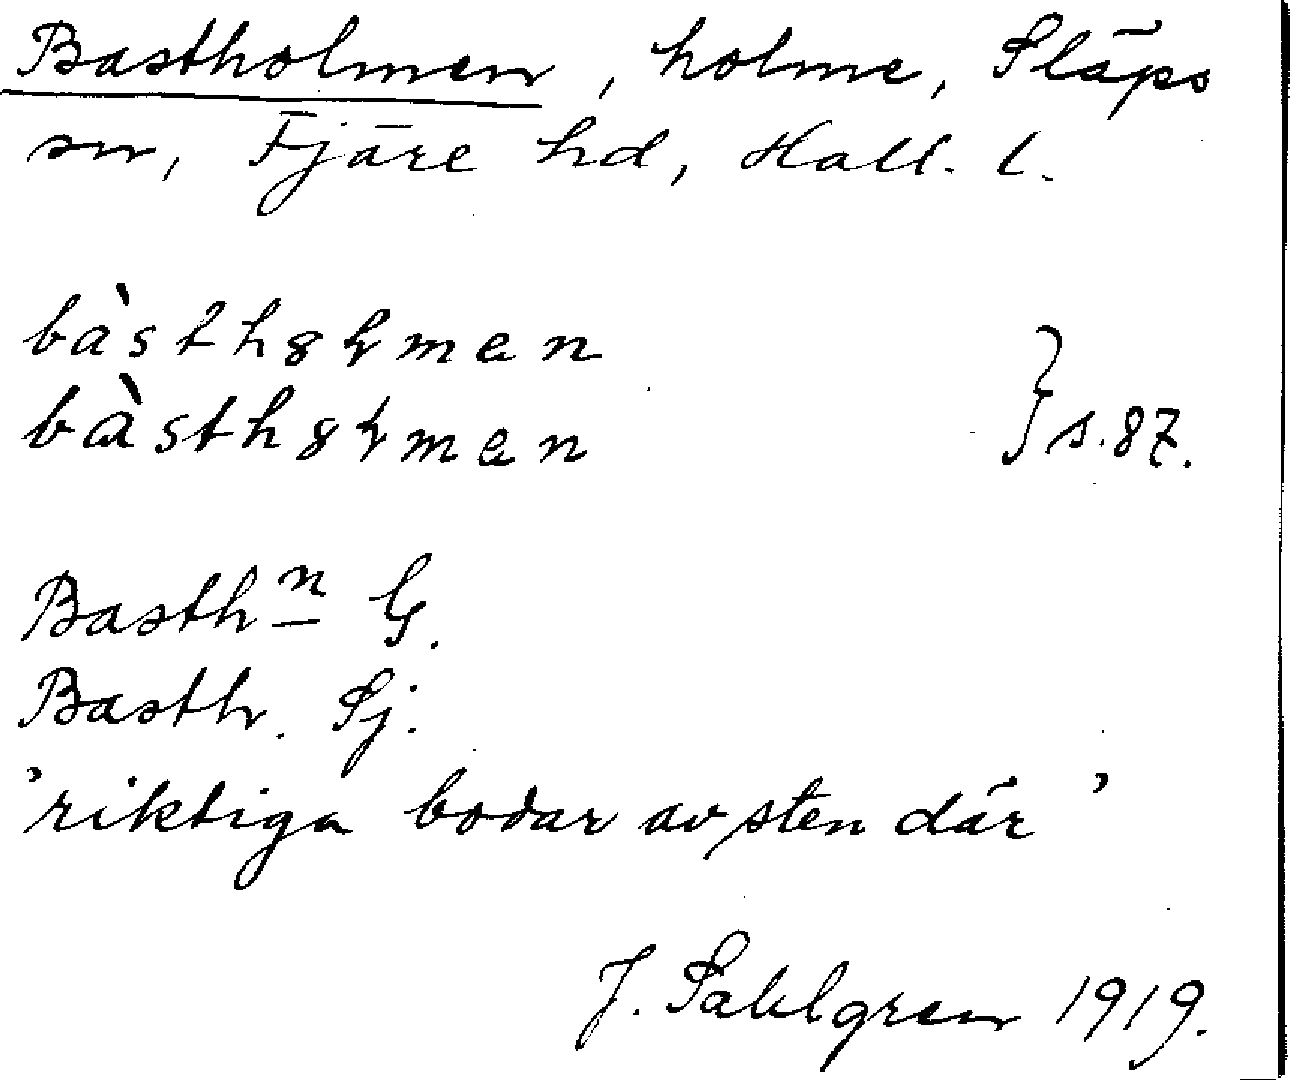 Bastholmen, holme, Släps
sn, Fjäre hd, Hall. l.
bàsthꝏɫmen
bàsthꝏɫmen } s. 87.
Basthn G.
Basth. Sj.
'riktiga bodar av sten där'
J. Sahlgren 1919.